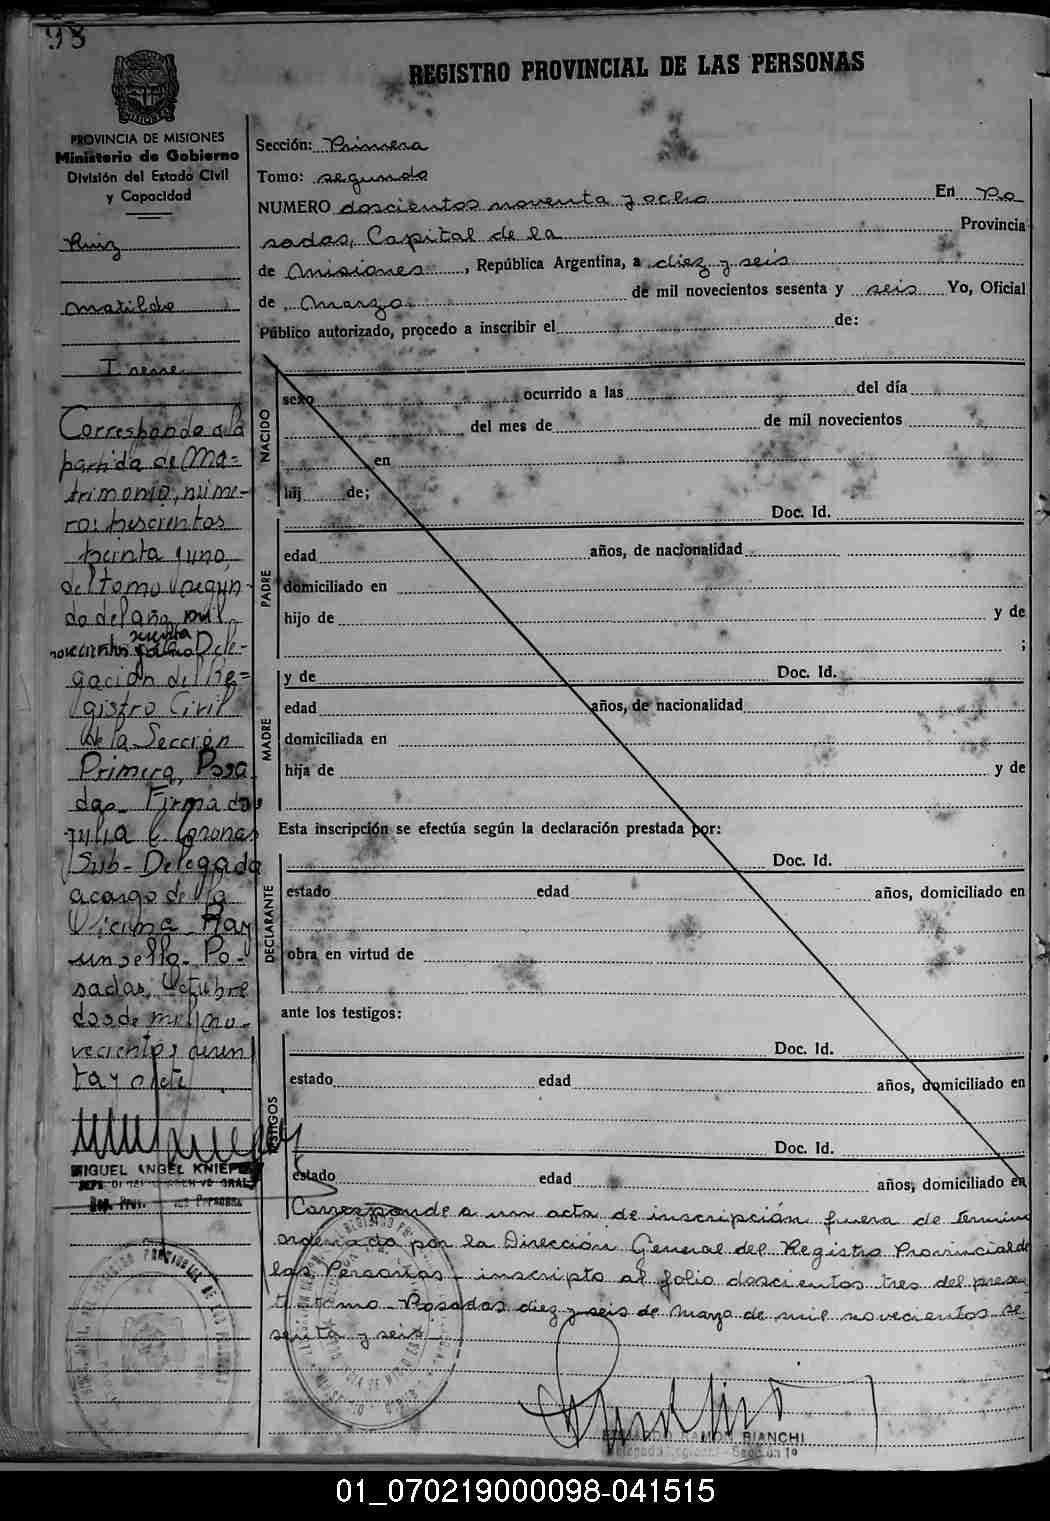 98
REGISTRO PROVINCIAL DE LAS PERSONAS
PROVINCIA DE MISIONES
Ministerio de Gobierno
División del Estado Civil
y Capacidad
Ruiz
Matilde
Irene
Corresponde a la
partida de Ma=
trimonio, núme-
ro: trescientos
treinta y uno,
del tomo segun-
do del año mil
novecientos sesenta
Dele-
gación del Re=
gistro Civil
de la Sección
Primera, Posa
das. Firmado:
Julia C. Coronas
Sub-Delegada
a cargo de la
Oficina. Hay
un sello. Po-
sadas, Octubre
dos de mil no-
vecientos
ta y
MIGUEL ANGEL KNIEPE
Sección: Primera
Tomo: segundo
NUMERO doscientos noventa y ocho En Po
sadas, Capital de la Provincia
de Misiones, República Argentina, a diez y seis
de Marzo de mil novecientos sesenta y seis Yo, Oficial
Público autorizado, procedo a inscribir el de:
NACIDO
sexo ocurrido a las del día
del mes de de mil novecientos
en
hij de;
Doc. Id.
PADRE
edad años, de nacionalidad
domiciliado en
hijo de y de
;
y de Doc. Id.
MADRE
edad años, de nacionalidad
domiciliada en
hija de y de
Esta inscripción se efectúa según la declaración prestada por:
Doc. Id.
DECLARANTE
estado edad años, domiciliado en
obra en virtud de
ante los testigos:
Doc. Id.
TESTIGOS
estado edad años, domiciliado en
Doc. Id.
estado edad años, domiciliado en
Corresponde a un acta de inscripción fuera de término
ordenada por la Dirección General del Registro Provincial de
las Personas - inscripto al folio doscientos tres del presen
te tomo - Posadas diez y seis de Marzo de mil novecientos se
senta y seis
RAMON BIANCHI
Sección 1º
01_070219000098-041515